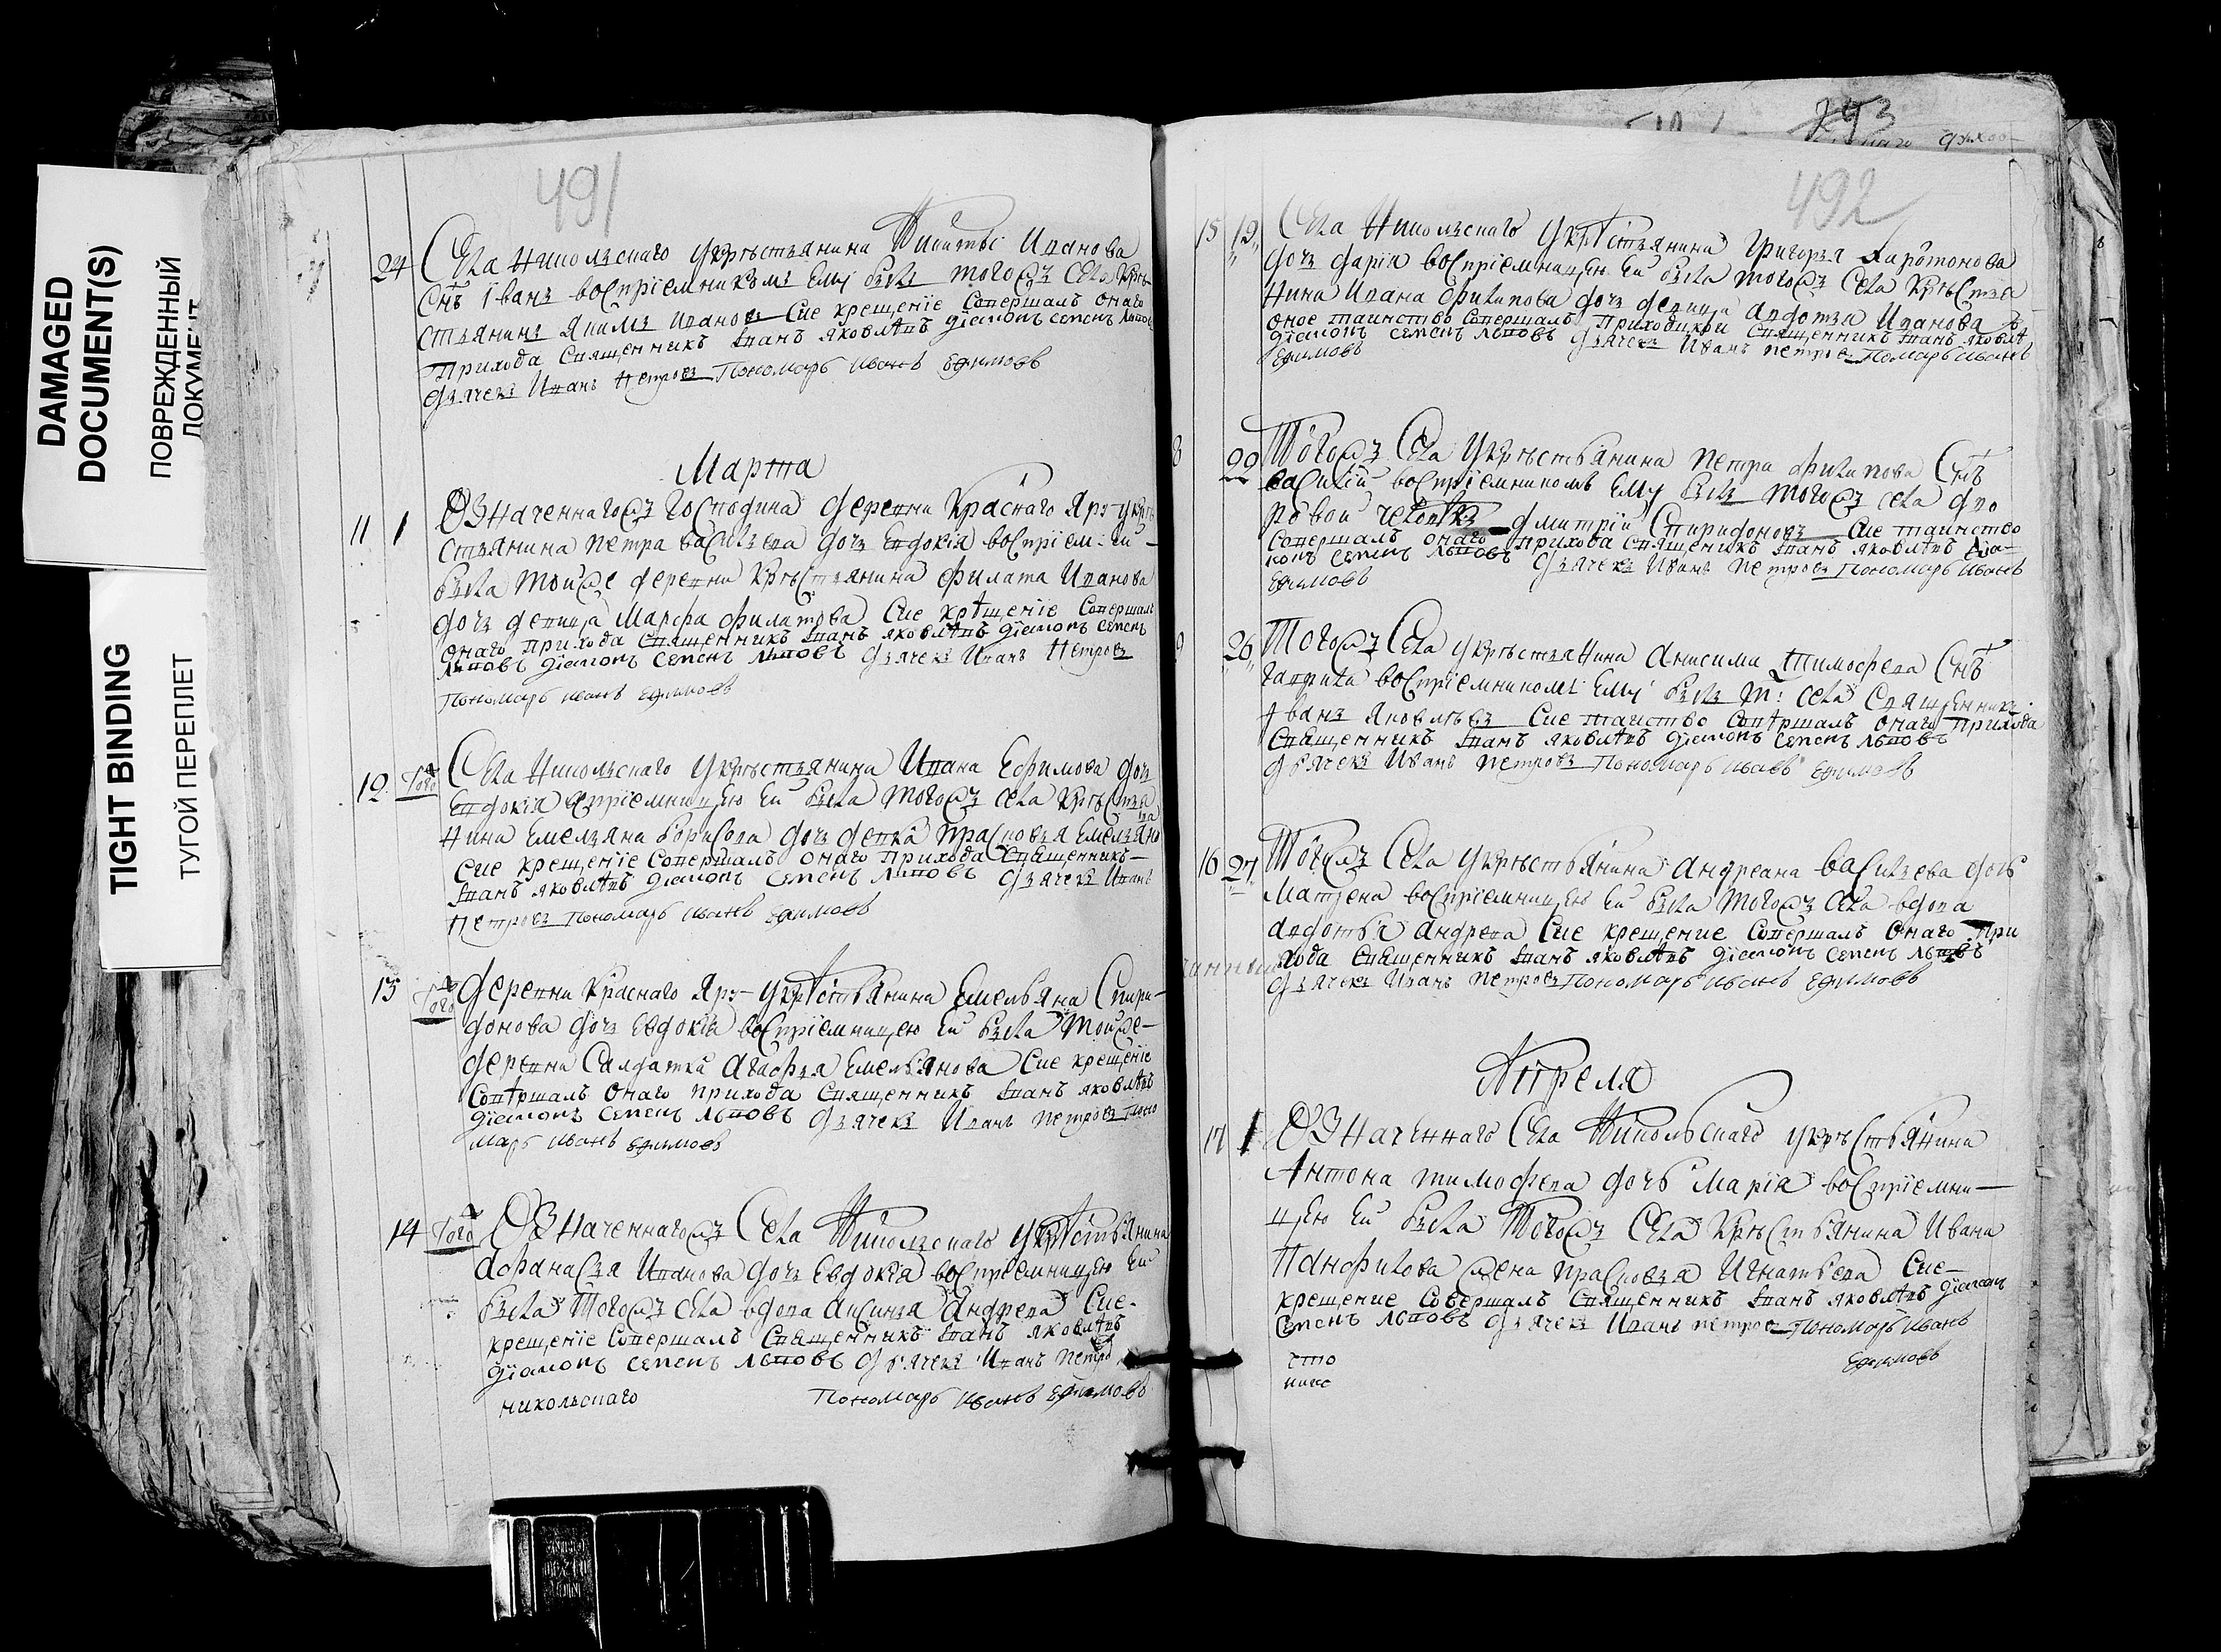 DAMAGED
DOCUMENT(S)
ПОВРЕЖДЕННЫЙ
ДОКУМЕНТ
TIGHT BINDING
ТУГОЙ ПЕРЕПЛЕТ
491
24 Села Никольскаго укрестьянина Никиты Иванова
снъ Іванъ воспріемникомъ ему былъ тогожъ села кре
стьянинъ Якимъ Ивановъ Сие крещеніе Совершалъ онаго
Прихода Священникъ Іванъ яковлевъ діаконъ семенъ львовъ
дьячекъ Иванъ Петровъ Пономарь иванъ ефимовъ
Марта
11 1 Означеннагожъ Господина деревни Краснаго Яру укре
стьянина петра васильева дочь Евдокія воспріем: ей
была тойже деревни крестьянина филата Иванова
дочь девица Марфа филатова Сие крещеніе Совершалъ
онаго прихода Священникъ Іванъ яковлевъ діаконъ семенъ
львовъ діаконъ семенъ львовъ дьячекъ Иванъ Петровъ
Пономарь иванъ ефимовъ
12 Того Села Никольскаго укрестьянина Ивана Ефимова дочь
Евдокія впріемницею ей была тогожъ села крестья
нина Емельяна борисова дочь девка прасковья Емельяно
ва
сие крещеніе Совершалъ онаго Прихода Священникъ
Іванъ яковлевъ діаконъ семенъ львовъ дьячекъ Иванъ
Петровъ Пономарь иванъ ефимовъ
13 Того деревни Краснаго Яру укрестьянина Емельяна Спири
донова дочь Евдокія воспріемницею ей была тойже
деревни Салдатка Агафья Емельянова Сие крещеніе
Совершалъ онаго прихода Священникъ Іванъ яковлевъ
діаконъ семенъ львовъ дьячекъ Иванъ петровъ Поно
марь иванъ ефимовъ
14 Того Означеннагожъ Села Никольскаго укрестьянина
Афанасья Иванова дочь Евдокія воспріемницею ей
была тогожъ села вдова аксинья андрева Сие
крещеніе Совершалъ Священникъ Іванъ яковлевъ
діаконъ семенъ львовъ дьячекъ Иванъ петро
никольскаго Пономарь иванъ ефимовъ
293
492
15 12 Села Никольскаго укрестьянина григорья харитонова
дочь дарія воспріемницею ей была тогожъ села крестья
нина Ивана филипова дочь девица авдотья Иванова
оное таинство Совершалъ Приходской Священникъ Іванъ яковле
діаконъ семенъ львовъ дьячекъ Иванъ петровъ Пономарь иванъ
ефимовъ
8 22 Тогожъ Села укрестьянина петра филипова Снъ
василій воспріемникомъ ему былъ тогожъ села дво
ровой человекъ дмитрій Спиридоновъ Сие таинство
Совершалъ онаго прихода священикъ Іванъ яковлевъ діа
конъ семенъ львовъ дьячекъ Иванъ петровъ Пономарь иванъ
ефимовъ
9 26 Тогожъ Села укрестьянина анисима тимофева Снъ
гаврила воспріемникомъ ему былъ т: села Священникъ
Іванъ яковлевъ Сие таиство Совершалъ онаго прихода
Священникъ Іванъ яковлевъ діаконъ семенъ львовъ
дьячекъ Иванъ петровъ Пономарь иванъ ефимовъ
16 27 Тогожъ Села укрестьянина андреана васильева дочь
Матрена воспріемницею ей была тогожъ села вдова
авдотья андрева Сие крещение Совершалъ онаго при
хода Священникъ Іванъ яковлевъ діаконъ семенъ львовъ
дьячекъ Иванъ петровъ Пономарь иванъ ефимовъ
Апреля
17 1 Означеннаго Села Никольскаго укрестьянина
Антона тимофева дочь Марія воспріемни
цею ей была тогожъ Села крестьянина Ивана
Панфилова жена прасковья Игнатьева Сие
крещение Совершалъ Священникъ Іванъ яковлевъ діаконъ
Семенъ львовъ дьячекъ Иванъ петровъ Пономарь иванъ
ефимовъ